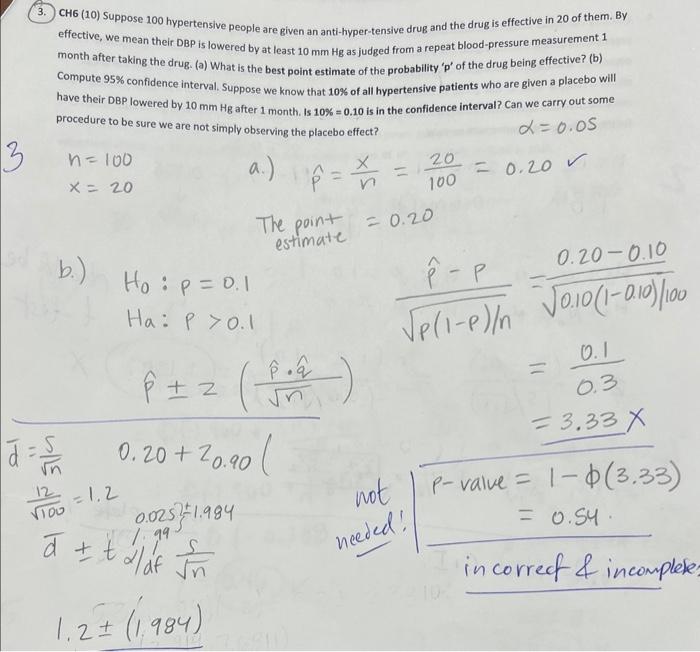 3. CH6 (10) Suppose 100 hypertensive people are given an anti-hyper-tensive drug and the drug is effective in 20 of them. By
effective, we mean their DBP is lowered by at least 10 mm Hg as judged from a repeat blood-pressure measurement 1
month after taking the drug. (a) What is the best point estimate of the probability 'p' of the drug being effective? (b)
Compute 95% confidence interval. Suppose we know that 10% of all hypertensive patients who are given a placebo will
have their DBP lowered by 10 mm Hg after 1 month. Is 10% = 0.10 is in the confidence interval? Can we carry out some
procedure to be sure we are not simply observing the placebo effect?
α = 0.05
3
n = 100
x = 20
a.) p̂ = x/n = 20/100 = 0.20 ✓
The point estimate = 0.20
b.) H₀ : p = 0.1
Ha : p > 0.1
p̂ - p / √p(1-p)/n = 0.20 - 0.10 / √0.10(1-0.10)/100
= 0.1/0.3
= 3.33 X
p̂ ± z (p̂·q̂/√n)
d̄ = s/√n
0.20 + z₀.₉₀ (
12/√100 = 1.2
0.025 } ± 1.984
1.99
d̄ ± t α/df s/√n
1.2 ± (1.984)
not
needed!
p-value = 1 - ϕ(3.33)
= 0.54.
incorrect & incomplete.